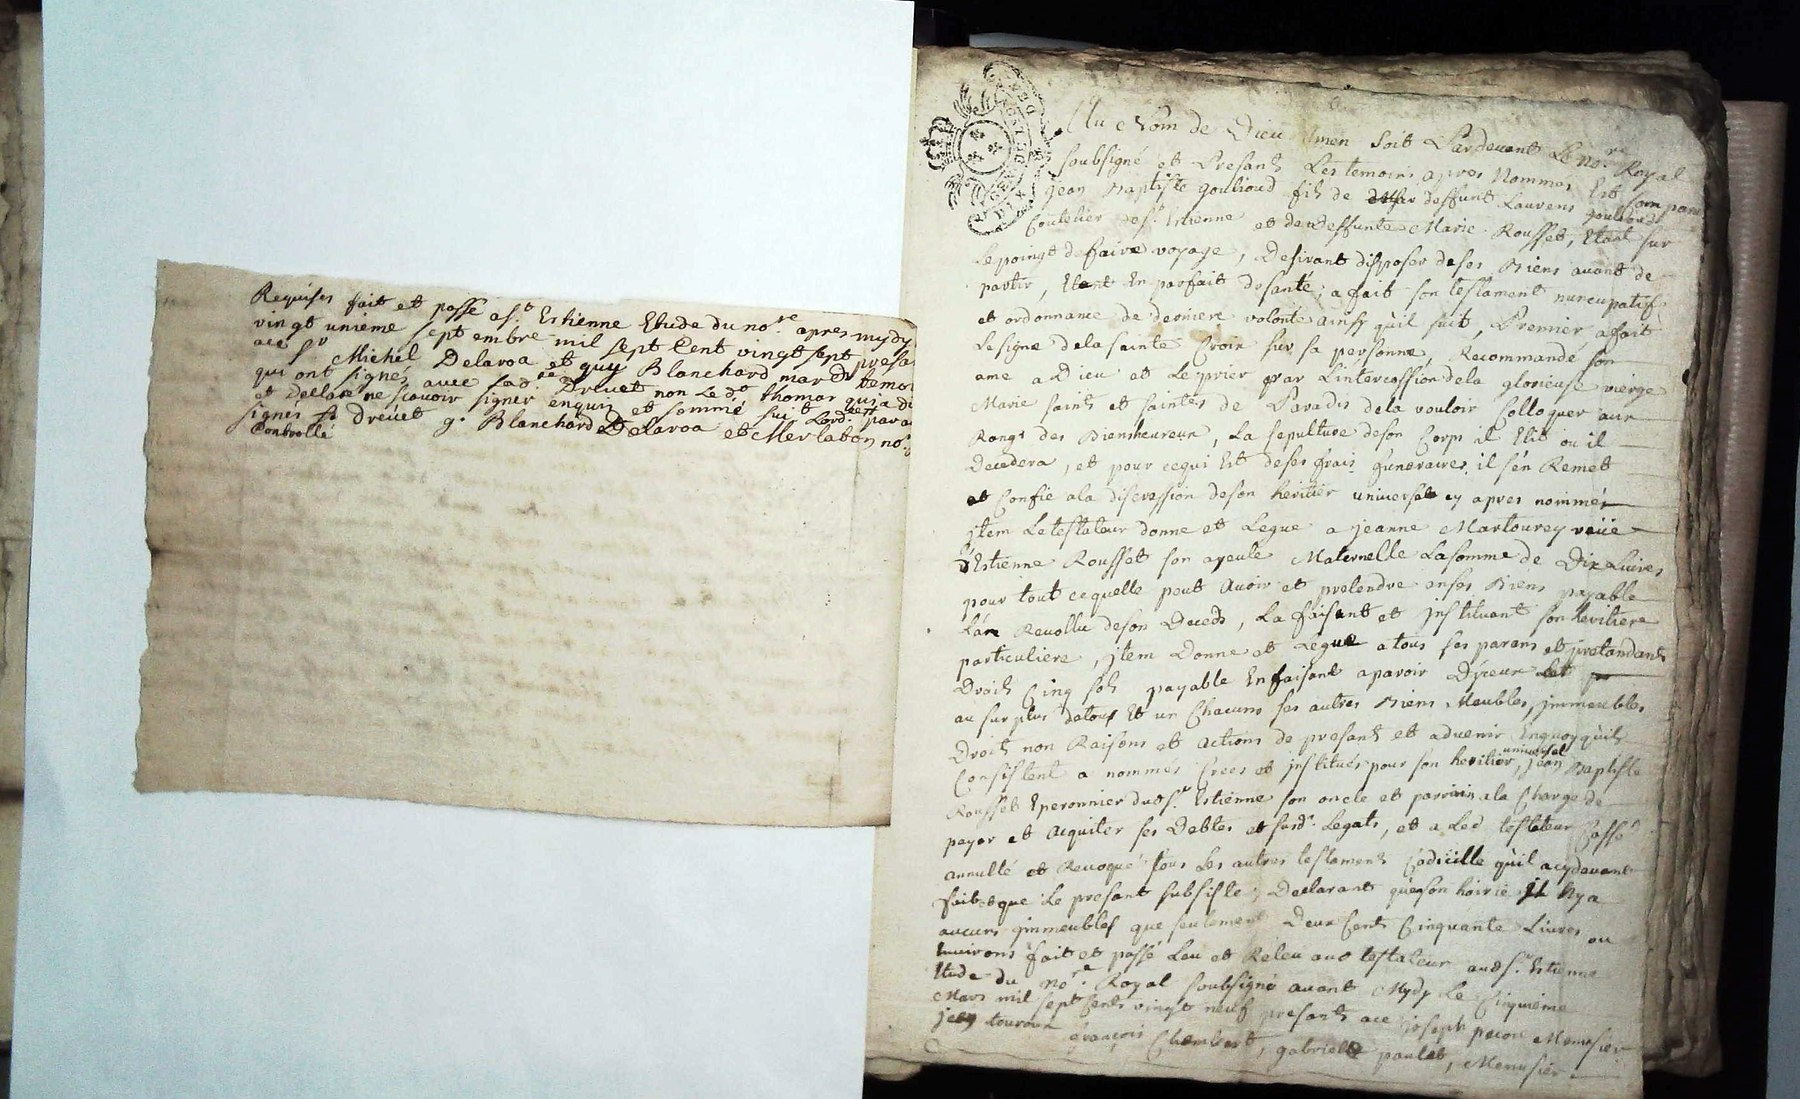 Requises fait et passé a St. Estienne Etude du nore. apres mydy
vingt unieme septembre mil sept Cent vingt sept presa
ace Sr Michel Delaroa et guy Blanchard mard. temo
qui ont signés avec lad. Drevet non Led. thomas qui a d
et declaré ne scavoir signer enquis et sommé
signés Drevet g. Blanchard Delaroa et Merlaton no.
Controllé
Au Nom de Dieu Amen soit Pardevant Le nore. Royal
soubsigné et Presants Les temoins apres Nommés Est
jean Baptiste goulioud fils de deffunt Laurens goulioud
Coutelier de St. Estienne et de deffunte Marie Rousset, Etant sur
Le poingt de faire voyage, Desirant disposer de ses Biens avant de
partir, Etant En parfait de santé, a fait son testament nuncupatif
et ordonnance de derniere volonté ainsy quil suit, Premier a fait
Le signe de la sainte Croix sur sa personne, Recommandé son
ame a Dieu et Le prier par Lintercession de la glorieuse vierge
Marie saints et saintes de Paradis de la vouloir Colloquer aux
Rangs des Bienheureux, La sepulture de son Corps il Elit ou il
Decedera, et pour ce qui Est de ses frais funeraires il s'en Remet
et Confie a la discression de son heritier universel cy apres nommés
jtem Le testateur donne et Legue a jeanne Martourey veüe
d'Estienne Rousset son ayeule Maternelle La somme de Dix Livres
pour tout ce quelle peut Avoir et pretendre en ses Biens payable
L'an Revollu de son Deceds, La faisant et jnstituant son heritiere
particuliere, jtem Donne et Legue a tous ses parans et pretandants
Droits Cinq sols payable En faisant aparoir D'jceux
au surplus de tous Et un Chacuns ses autres Biens Meubles, jmmeubles
Droits non Raisons et Actions de presants et advenir Enquoy quils
Consistent a nommés Crees et jnstitués pour son heritier universel, jean Baptiste
Rousset Eperonnier dud St. Estienne son oncle et parrain a la Charge de
payer et Acquiter ses Debtes et susd. Legats, et a Led testateur Cassé
annullé et Revoqué tous Les autres testaments Codicille quil a cy devant
faits que Le presant subsiste, Declarant quen son hoirie il Ny a
aucuns jmmeubles que seulement Deux Cents Cinquante Livres ou
Environs fait et passé Leu et Releu aud testateur aud St. Estienne
Etude du nore. Royal soubsigné avant Mydy Le Cinquieme
Mars mil sept Cents vingt neuf presants ace joseph Menusier
françois Chambert, gabriel paulet, Menusier